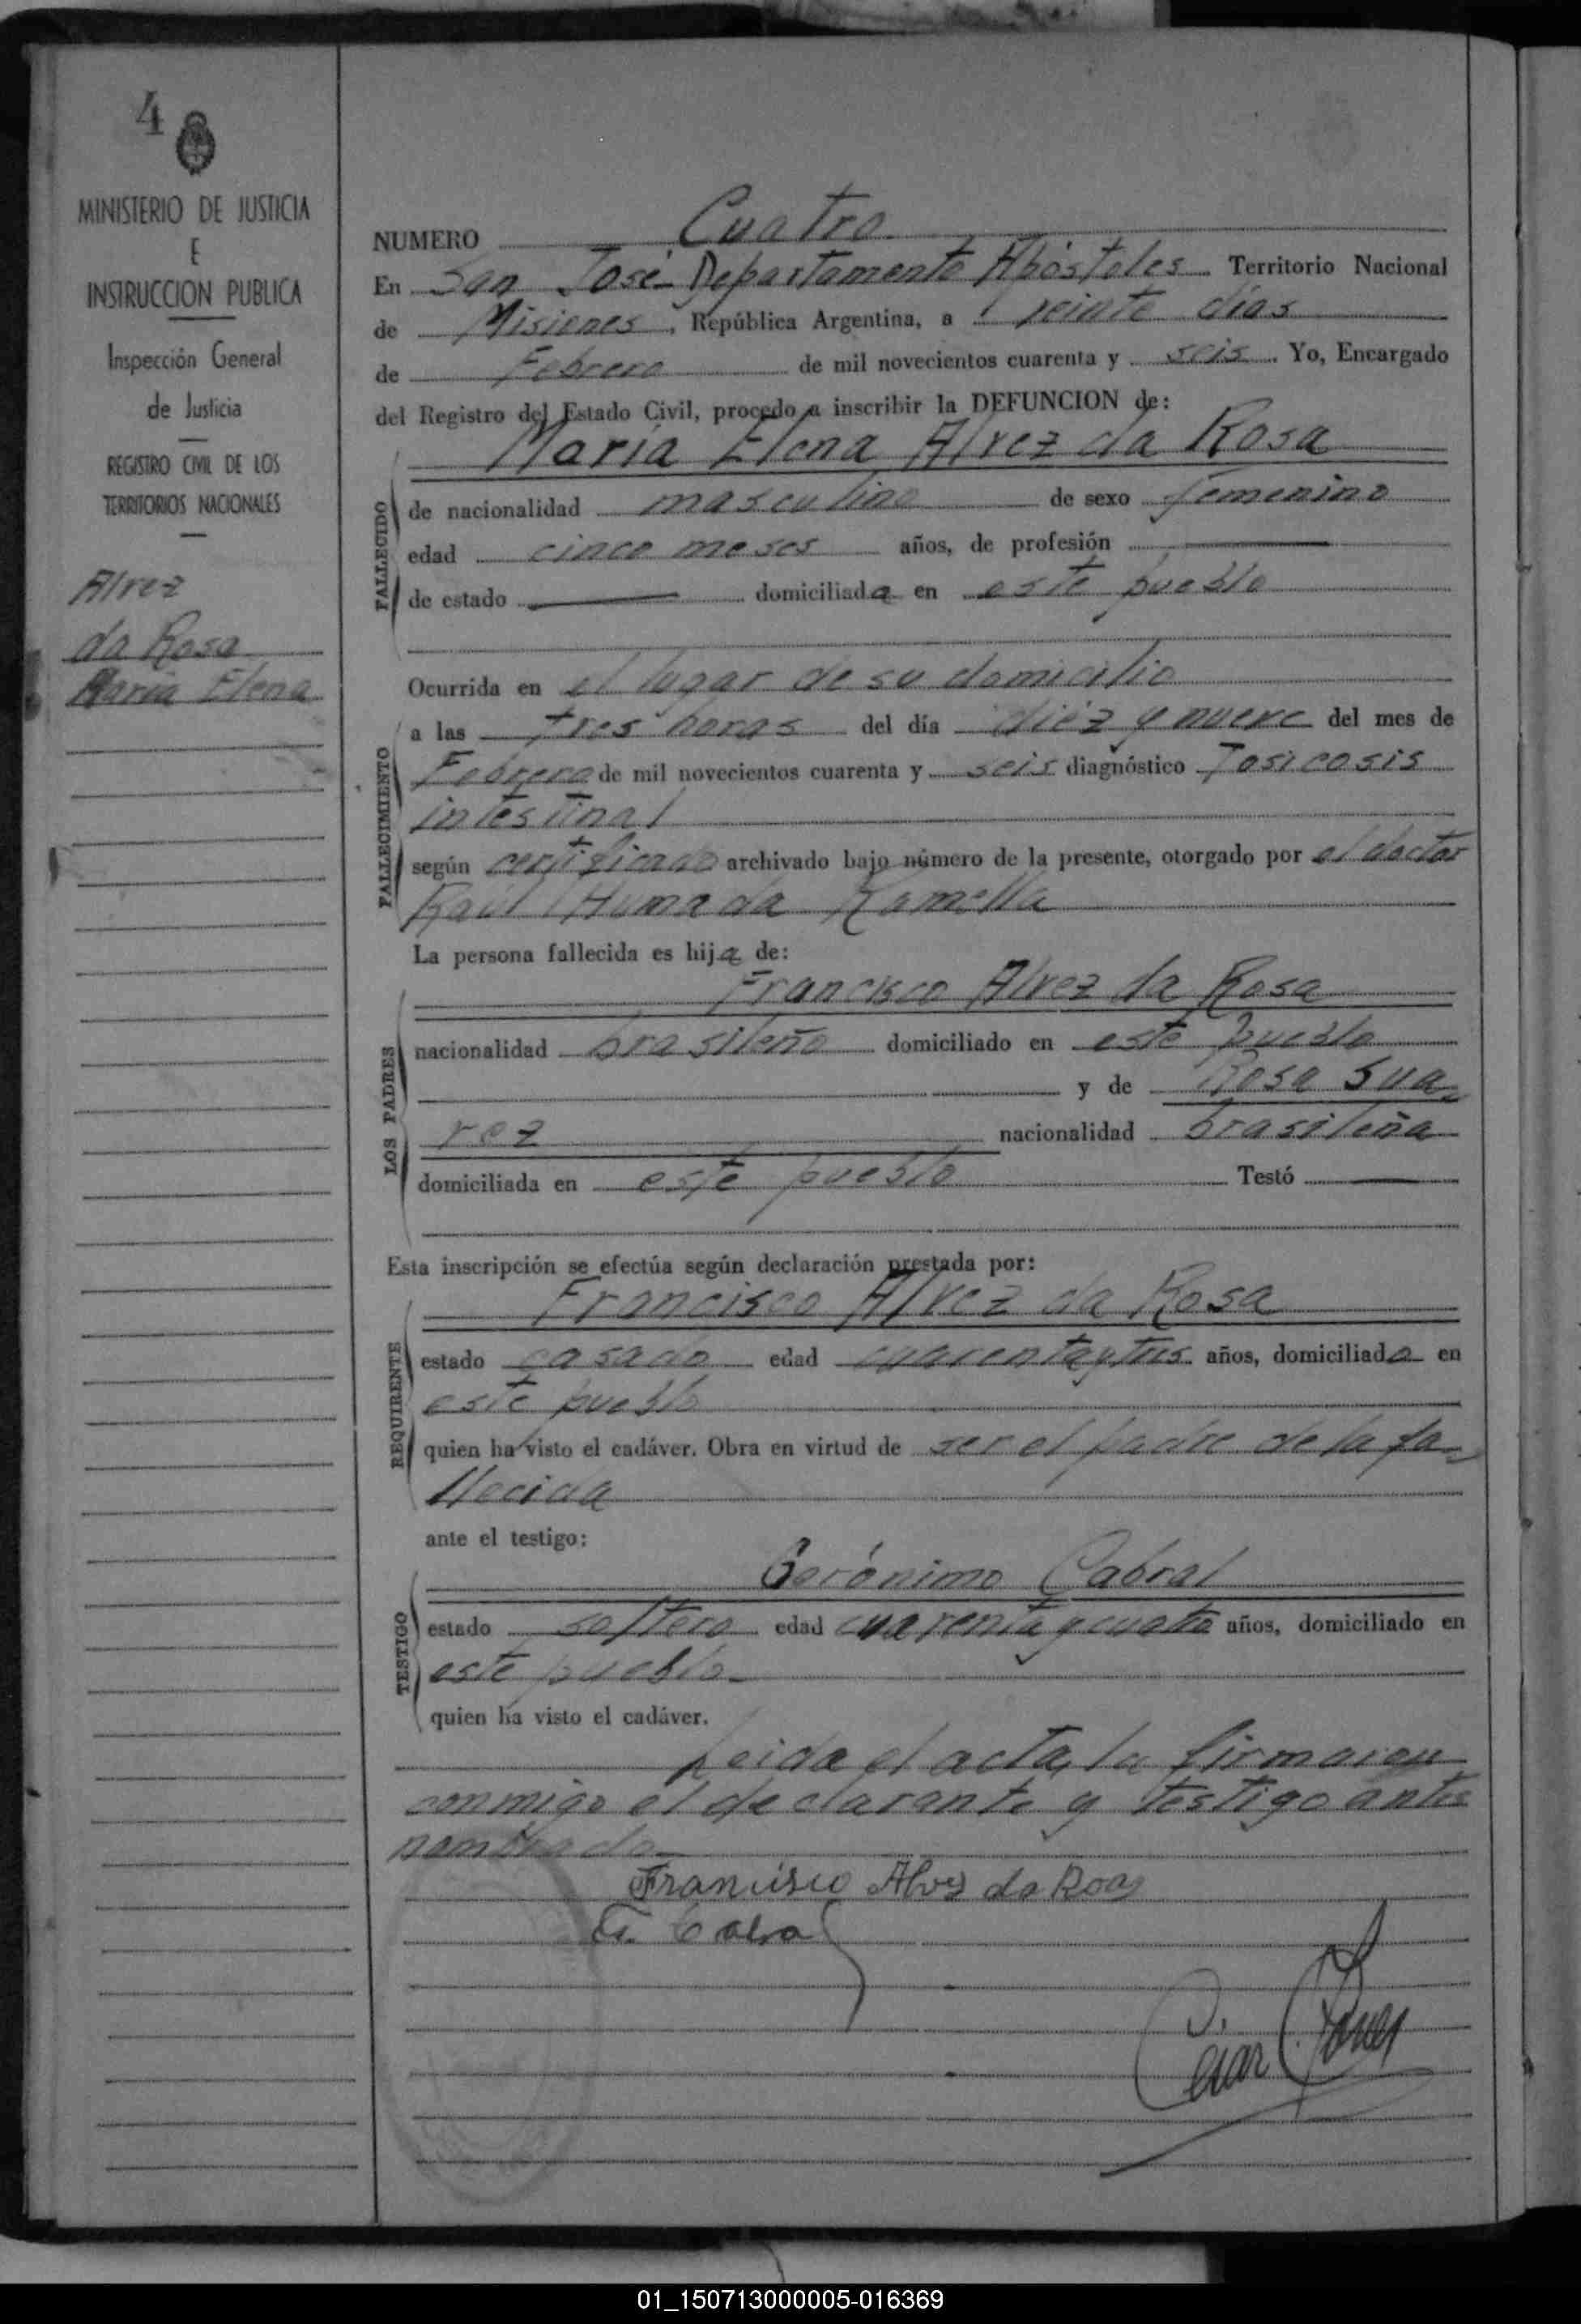 4
MINISTERIO DE JUSTICIA
E
INSTRUCCION PUBLICA
Inspección General
de Justicia
REGISTRO CIVIL DE LOS
TERRITORIOS NACIONALES
Alvez
da Rosa
María Elena
NUMERO Cuatro
En San José Departamento Apóstoles Territorio Nacional
de Misiones, República Argentina, a veinte días
de Febrero de mil novecientos cuarenta y seis. Yo, Encargado
del Registro del Estado Civil, procedo a inscribir la DEFUNCION de:
María Elena Alvez da Rosa
FALLECIDO
de nacionalidad masculino de sexo femenino
edad cinco meses años, de profesión
de estado domiciliada en este pueblo
Ocurrida en el lugar de su domicilio
FALLECIMIENTO
a las tres horas del día diéz y nueve del mes de
Febrero de mil novecientos cuarenta y seis diagnóstico Tosicosis
intestinal
según certificado archivado bajo número de la presente, otorgado por el doctor
Raúl Humada Ramella
La persona fallecida es hija de:
Francisco Alvez da Rosa
LOS PADRES
nacionalidad brasileño domiciliado en este pueblo
y de Rosa Sua
rez nacionalidad brasileña
domiciliada en este pueblo Testó
Esta inscripción se efectúa según declaración prestada por:
Francisco Alvez da Rosa
REQUIRENTE
estado casado edad cuarenta y tres años, domiciliado en
este pueblo
quien ha visto el cadáver. Obra en virtud de ser el padre de la fa-
llecida
ante el testigo:
Gerónimo Cabral
TESTIGO
estado soltero edad cuarenta y cuatro años, domiciliado en
este pueblo
quien ha visto el cadáver.
Leida el acta, la firmaron
conmigo el declarante y testigo antes
nombrado
Francisco Alvez da Rosa
G. Cabral
01_150713000005-016369